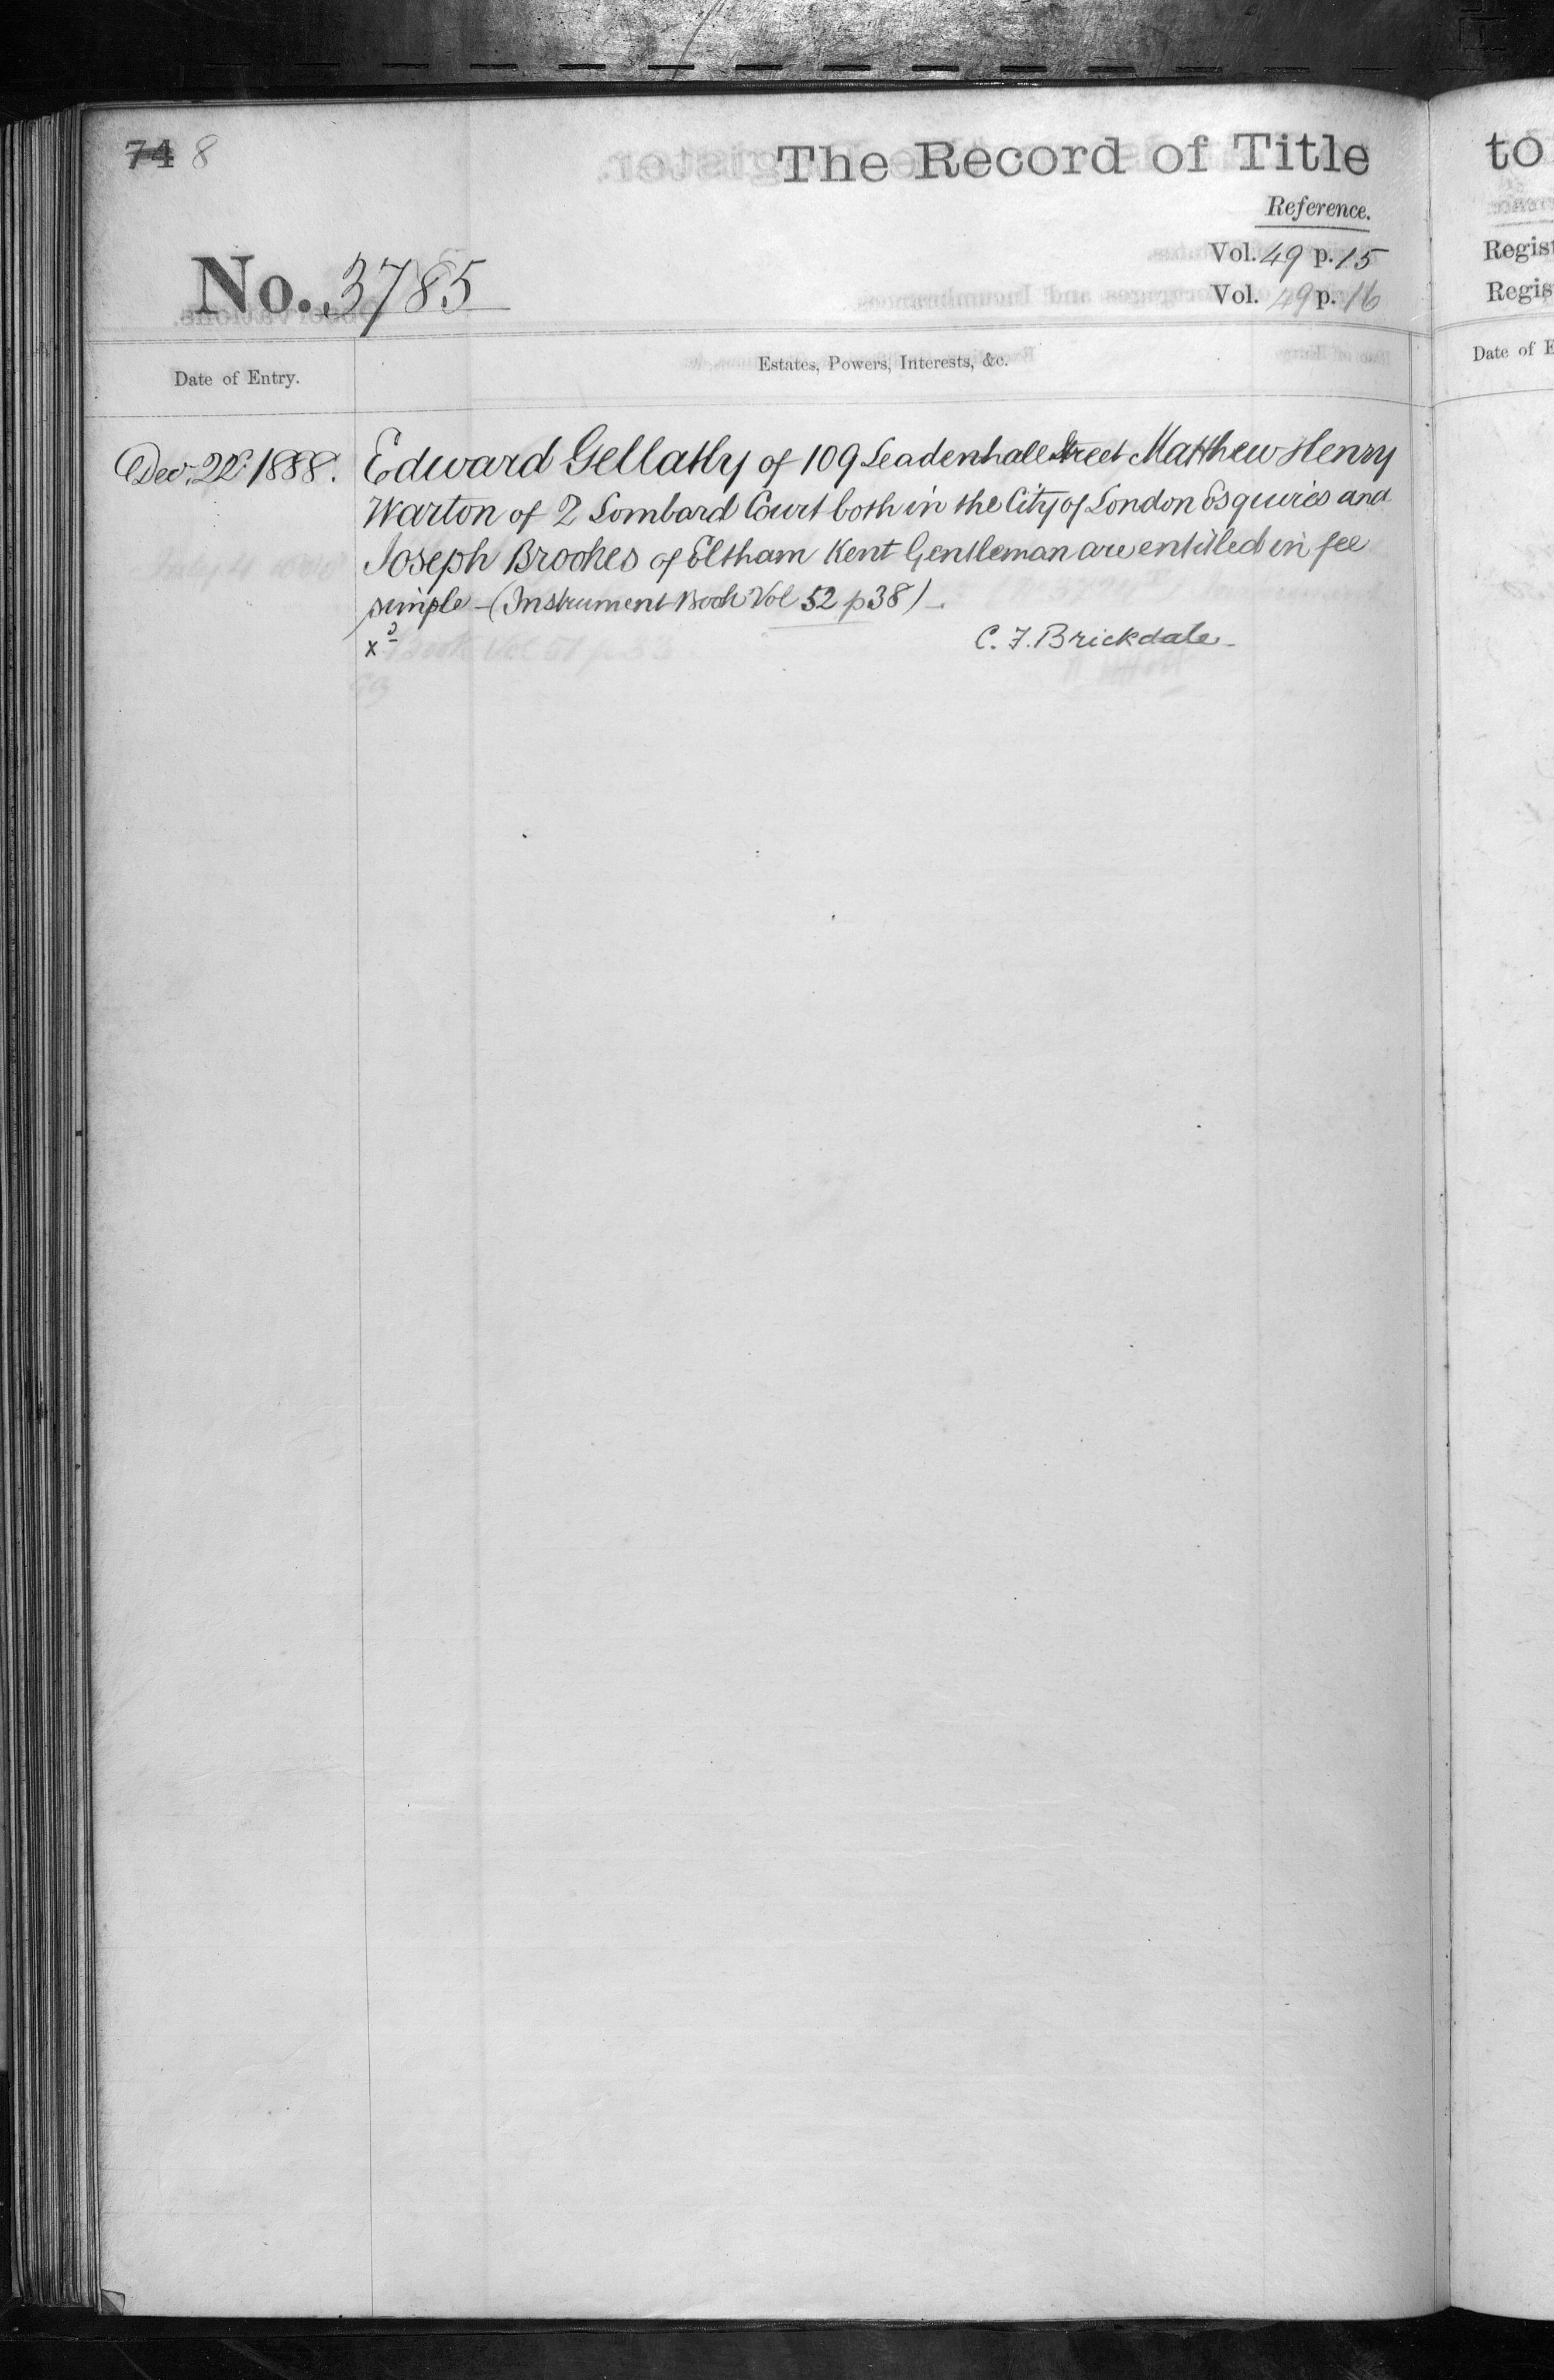 74 8
The Record of Title
Reference.
Vol. 49 p. 15
Vol. 49 p. 16
No. 3785
Date of Entry.
Estates, Powers, Interests, &c.
Dec. 22d. 1888.
Edward Gellatly of 109 Leadenhall Street Matthew Henry
Warton of 2 Lombard Court both in the City of London Esquires and
Joseph Brookes of Eltham Kent Gentleman are entitled in fee
simple - (Instrument Book Vol 52 p 38) -
C. F. Brickdale -
to
Regist
Regis
Date of E